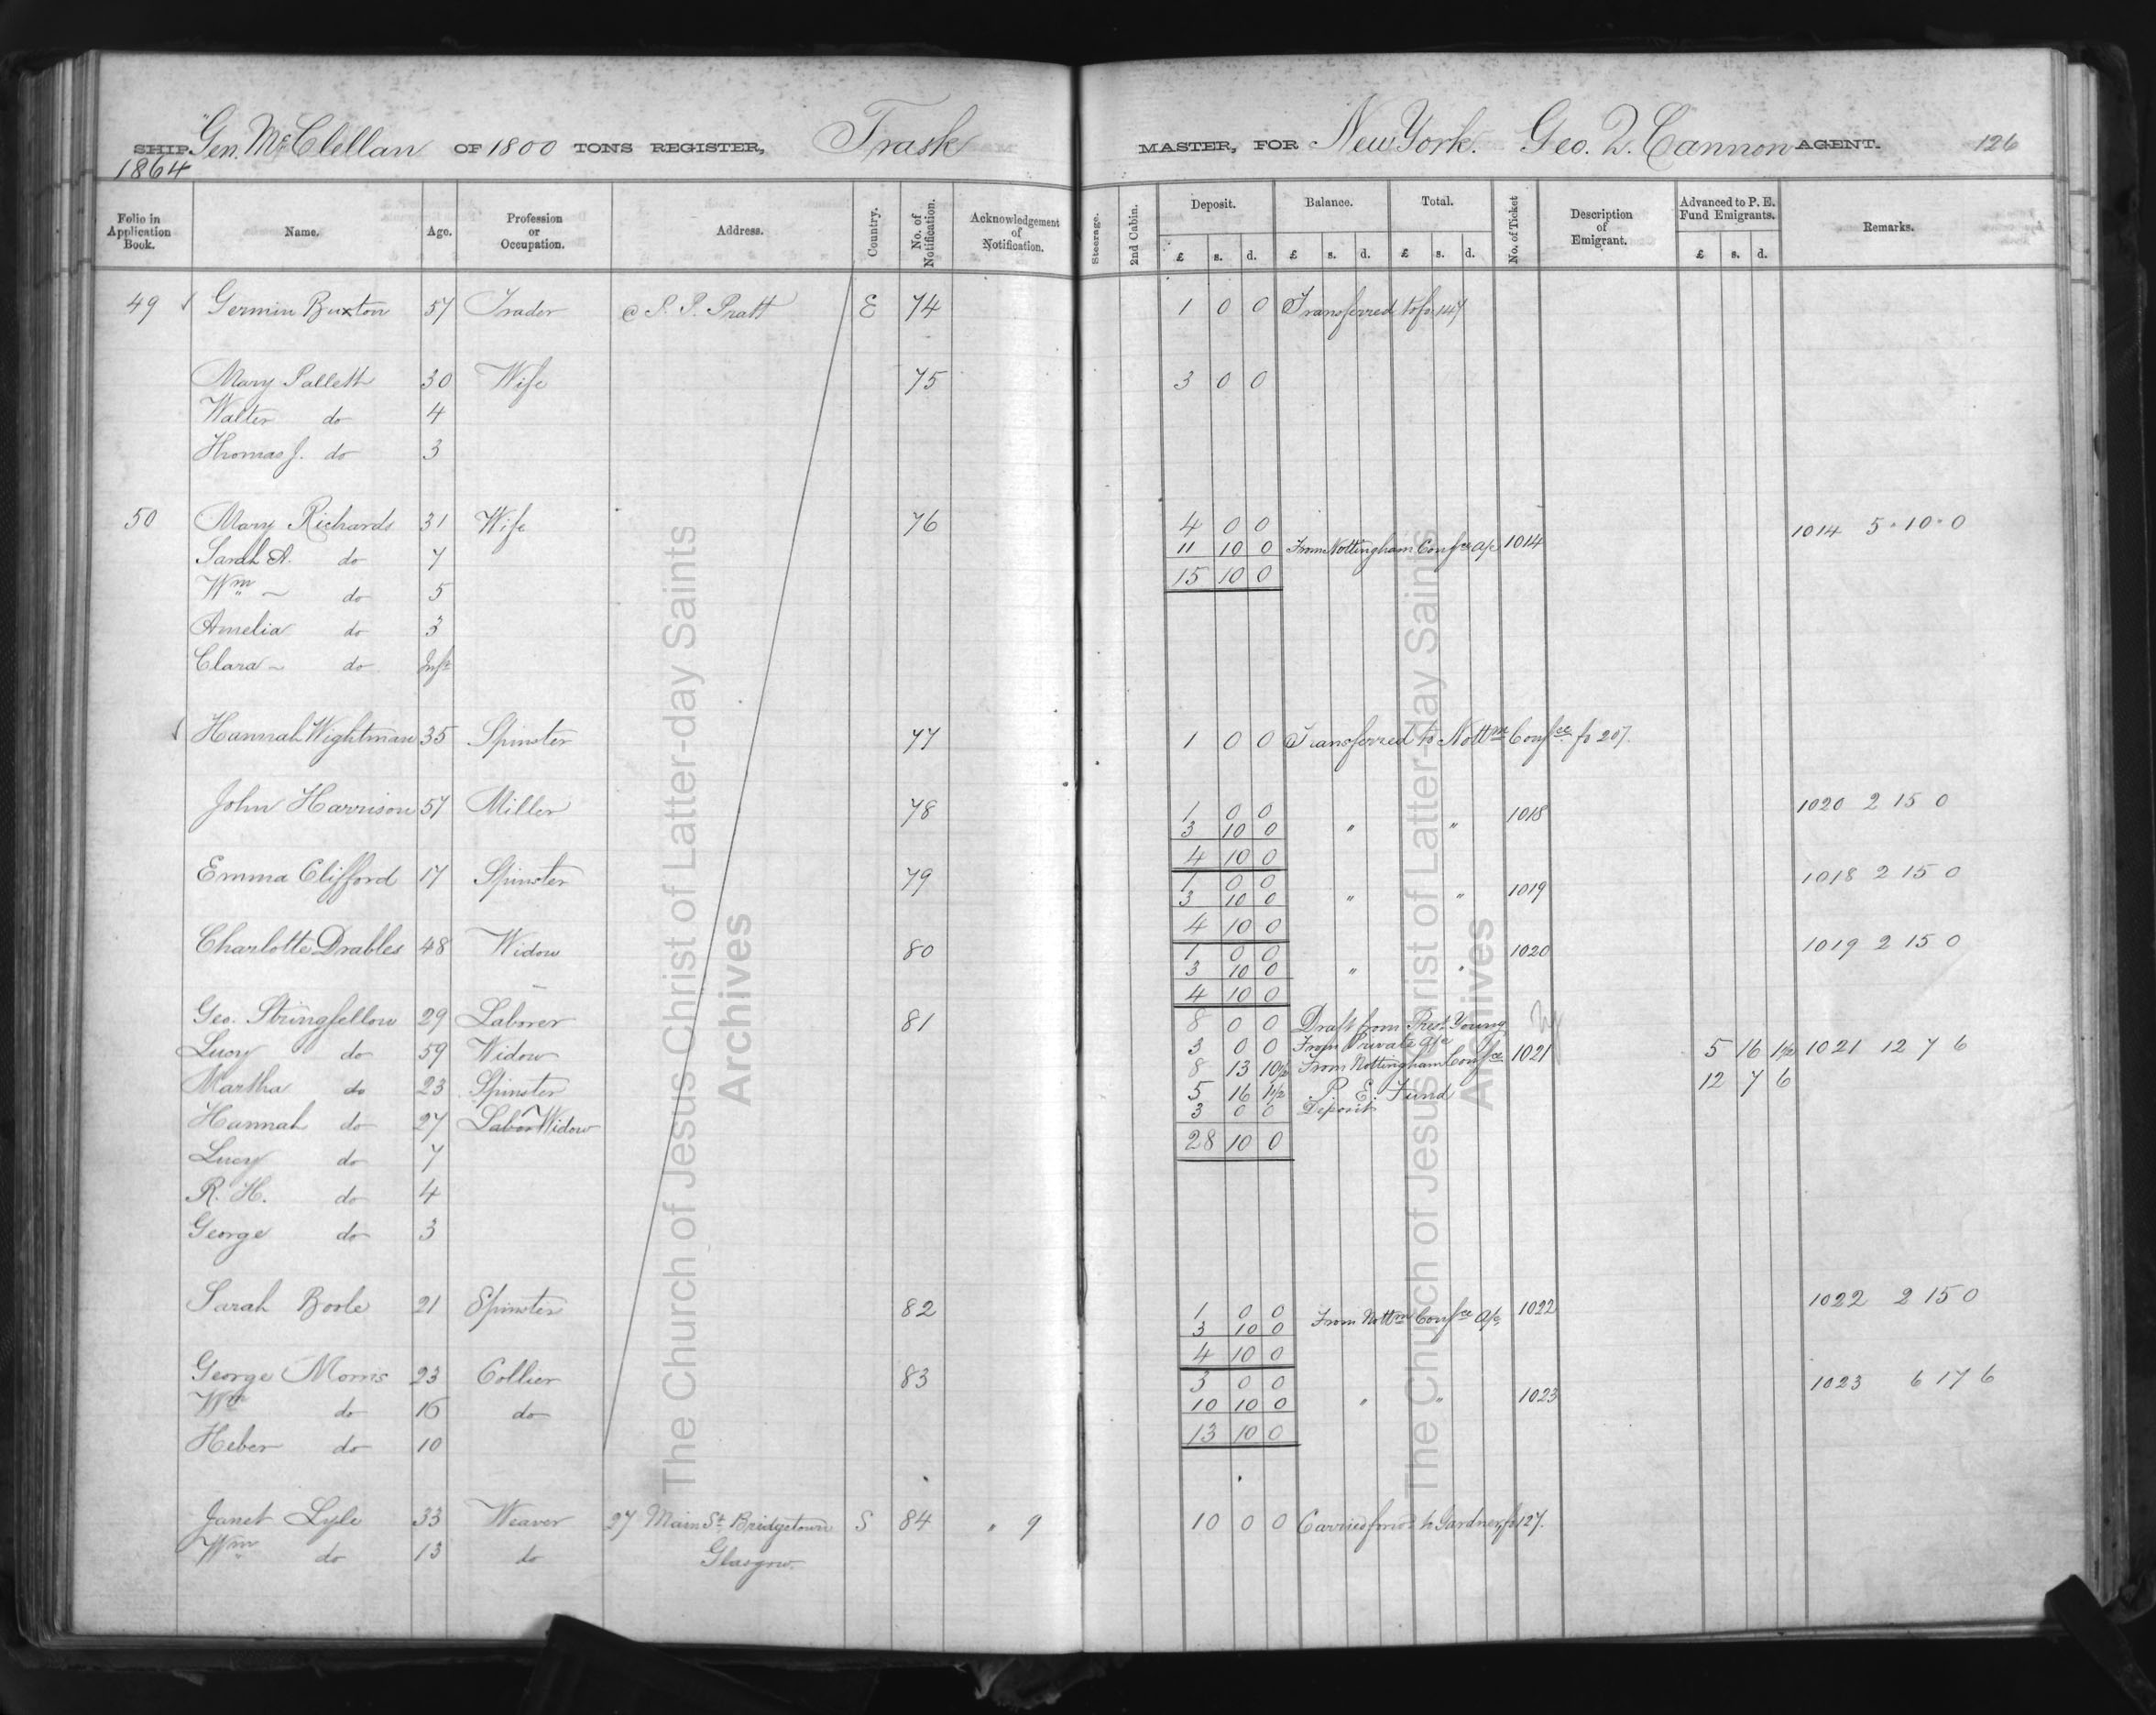 SHIP "Gen. McClellan OF 1800 TONS REGISTER, Trask MASTER, FOR New York. Geo. Q. Cannon AGENT. 126
1864
Folio in Application Book. Name. Age. Profession or Occupation. Address. Country. No. of Notification. Acknowledgement of Notification. Steerage. 2nd Cabin. Deposit. Balance. Total. No. of Ticket Description of Emigrant. Advanced to P. E. Fund Emigrants. Remarks.
£ s. d. £ s. d. £ s. d. £ s. d.
49 Germin Buxton 57 Trader @ S. P. Pratt E 74 1 0 0 Transferred to fo. 147
Mary Pallett 30 Wife 75 3 0 0
Walter do 4
Thomas J. do 3
50 Mary Richards 31 Wife 76 4 0 0 1014 5 10 0
Sarah A. do 7 11 10 0 From Nottingham Confce a/c 1014
Wm do 5 15 10 0
Amelia do 3
Clara do Inft
Hannah Wightman 35 Spinster 77 1 0 0 Transferred to Nottm Confce fo 207.
John Harrison 57 Miller 78 1 0 0 1018 1020 2 15 0
3 10 0 " "
4 10 0
Emma Clifford 17 Spinster 79 1 0 0 1019 1018 2 15 0
3 10 0 " "
4 10 0
Charlotte Drables 48 Widow 80 1 0 0 1020 1019 2 15 0
3 10 0 " "
4 10 0
Geo. Stringfellow 29 Laborer 81 8 0 0 Draft from Prest Young
Lucy do 59 Widow 3 0 0 From Private a/c 1021 5 16 1½ 1021 12 7 6
8 13 10½ From Nottingham Confce
Martha do 23 Spinster 5 16 1½ P. E. Fund 12 7 6
Hannah do 27 Labor Widow 3 0 0 Deposit
28 10 0
Lucy do 7
R. H. do 4
George do 3
Sarah Boole 21 Spinster 82 1 0 0 1022 1022 2 15 0
3 10 0 From Nottm Confce a/c
4 10 0
George Morris 23 Collier 83 3 0 0 1023 6 17 6
Wm do 16 do 10 10 0 " " 1023
Heber do 10 13 10 0
Janet Lyle 33 Weaver 27 Main St Bridgetown S 84 " 9 10 0 0 Carried forwd to Gardner, fo 127.
Wm do 13 do Glasgow.
The Church of Jesus Christ of Latter-day Saints
Archives
The Church of Jesus Christ of Latter-day Saints
Archives